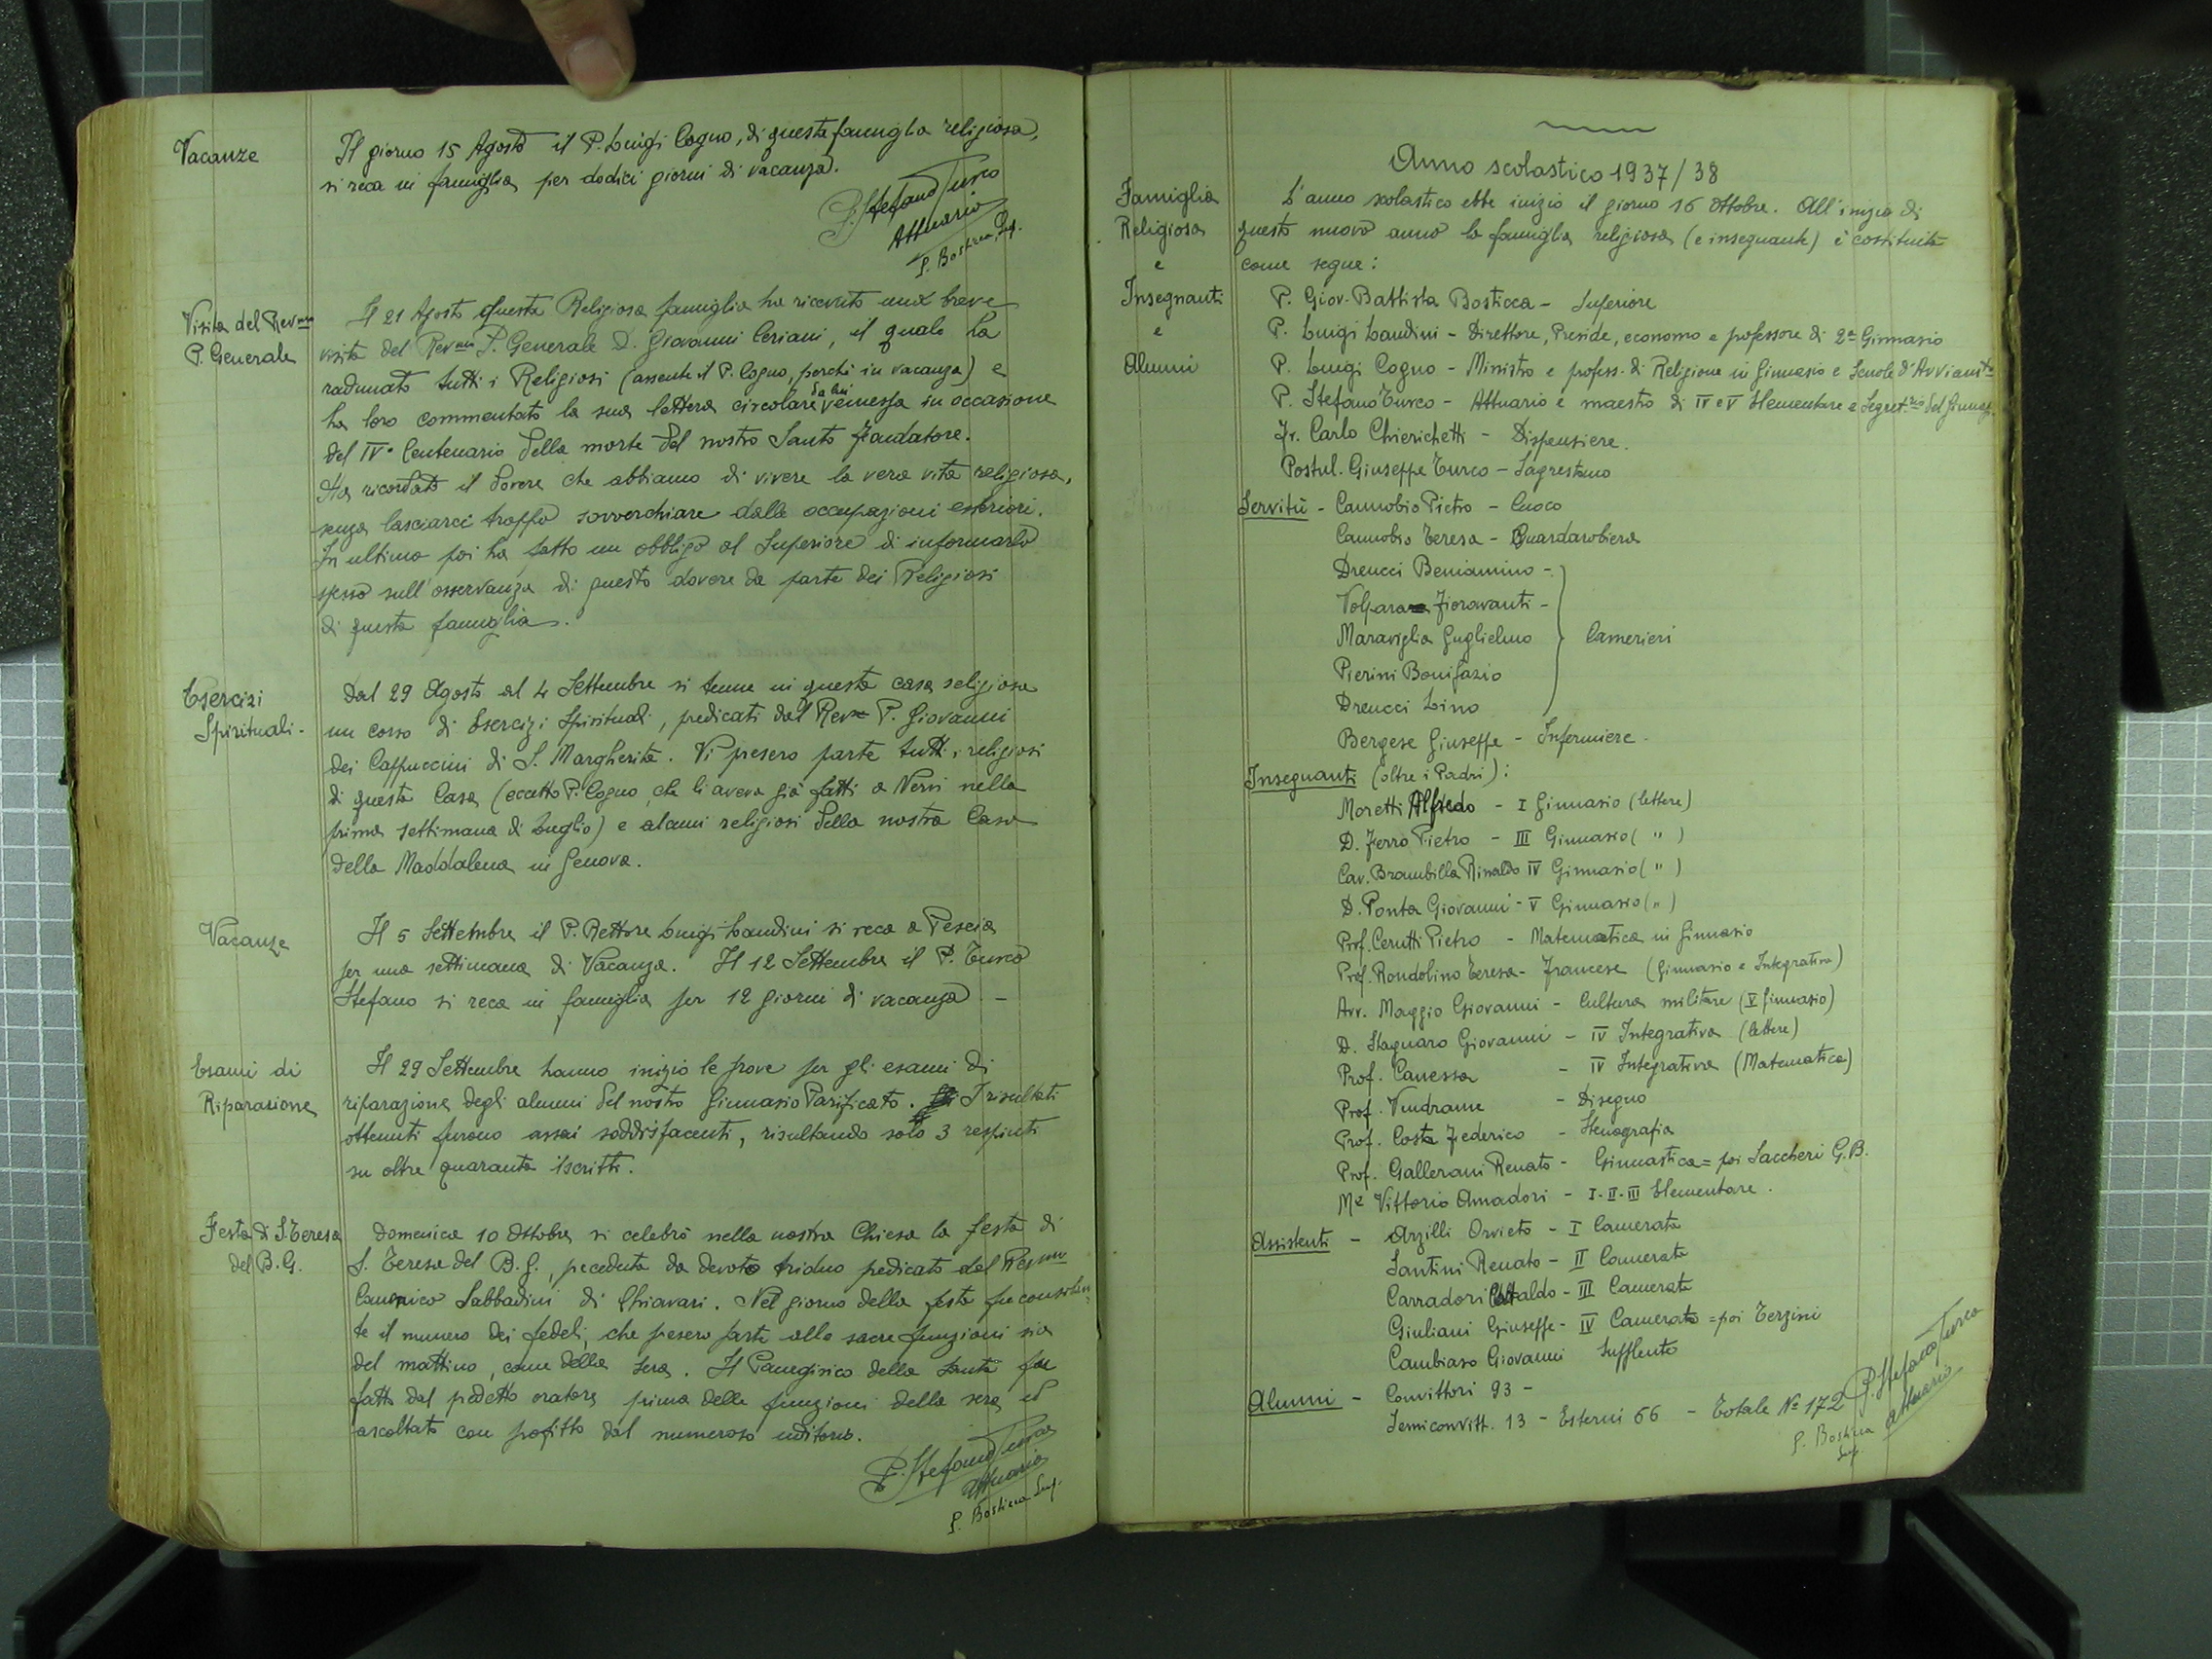 Vacanze
Il giorno 15 Agosto il P. Luigi Cogno, di questa famiglia religiosa,
si reca in famiglia per dodici giorni di vacanza.
P. Stefano Turco
Attuario
P. Bosticca Sup.
Visita del Rev.mo
P. Generale
Il 21 Agosto questa Religiosa famiglia ha ricevuto una breve
visita del Rev.mo P. Generale D. Giovanni Ceriani, il quale ha
radunato tutti i Religiosi (assente il P. Cogno, perchè in vacanza) e
ha loro commentato la sua lettera circolare da lui emessa in occasione
del IV° Centenario della morte del nostro Santo Fondatore.
Ha ricordato il dovere che abbiamo di vivere la vera vita religiosa,
senza lasciarci troppo soverchiare dalle occupazioni esteriori.
In ultimo poi ha fatto un obbligo al Superiore di informarlo
spesso sull'osservanza di questo dovere da parte dei Religiosi
di questa famiglia.
Esercizi
Spirituali -
Dal 29 Agosto al 4 Settembre si tenne in questa casa religiosa
un corso di Esercizi Spirituali, predicati dal Rev. P. Giovanni
dei Cappuccini di S. Margherita. Vi presero parte tutti i religiosi
di questa Casa (eccetto P. Cogno, che li aveva già fatti a Nervi nella
prima settimana di Luglio) e alcuni religiosi della nostra Casa
della Maddalena in Genova.
Vacanze
Il 5 Settembre il P. Rettore Luigi Landini si reca a Pescia
per una settimana di Vacanza. Il 12 Settembre il P. Turco
Stefano si reca in famiglia per 12 giorni di vacanza -
Esami di
Riparazione
Il 29 Settembre hanno inizio le prove per gli esami di
riparazione degli alunni del nostro Ginnasio Parificato. I risultati
ottenuti furono assai soddisfacenti, risultando solo 3 respinti
su oltre quaranta iscritti.
Festa di S. Teresa
del B. G.
Domenica 10 Ottobre si celebrò nella nostra Chiesa la festa di
S. Teresa del B. G., preceduta da devoto triduo predicato dal Rev.mo
Canonico Sabbadini di Chiavari. Nel giorno della festa fu consolan-
te il numero dei fedeli, che presero parte alle sacre funzioni sia
del mattino, come della sera. Il Panegirico della Santa fu
fatto dal predetto oratore prima delle funzioni della sera ed
ascoltato con profitto dal numeroso uditorio.
P. Stefano Turco
Attuario
P. Bosticca Sup.
Anno scolastico 1937/38
Famiglia
Religiosa
e
Insegnanti
e
Alunni
L'anno scolastico ebbe inizio il giorno 16 Ottobre. All'inizio di
questo nuovo anno la famiglia religiosa (e insegnante) è costituita
come segue:
P. Giov. Battista Bosticca - Superiore
P. Luigi Landini - Direttore, Preside, economo e professore di 2ª Ginnasio
P. Luigi Cogno - Ministro e profess. di Religione in Ginnasio e Scuole d'Avviam.to
P. Stefano Turco - Attuario e maestro di IV e V Elementare e Segret.rio del Ginnas.
Fr. Carlo Chierichetti - Dispensiere.
Postul. Giuseppe Turco - Sagrestano
Servitù - Cannobio Pietro - Cuoco
Cannobio Teresa - Guardarobiera
Dreucci Beniamino -
Volpara Fioravanti -
Maraviglia Guglielmo
Camerieri
Pierini Bonifazio
Dreucci Lino
Bergese Giuseppe - Infermiere.
Insegnanti (oltre i Padri):
Moretti Alfredo - I Ginnasio (lettere)
D. Ferro Pietro - III Ginnasio ( " )
Cav. Brambilla Rinaldo IV Ginnasio ( " )
D. Ponta Giovanni - V Ginnasio ( " )
Prof. Cerutti Pietro - Matematica in Ginnasio
Prof. Rondolino Teresa - Francese (Ginnasio e Integrativa)
Avv. Maggio Giovanni - Cultura militare (V Ginnasio)
D. Stagnaro Giovanni - IV Integrativa (lettere)
Prof. Canessa - IV Integrativa (Matematica)
Prof. Vendrame - Disegno
Prof. Costa Federico - Stenografia
Prof. Gallerani Renato - Ginnastica = poi Saccheri G.B.
Me Vittorio Amadori - I-II-III Elementare.
Assistenti - Arzilli Orvieto - I Camerata
Santini Renato - II Camerata
Carradori - III Camerata
Giuliani Giuseppe - IV Camerata = poi Terzini
Cambiaso Giovanni Supplente
Alunni - Convittori 93 -
Semiconvitt. 13 - Esterni 66 - Totale Nº 172
P. Stefano Turco
Attuario
P. Bosticca
Sup.